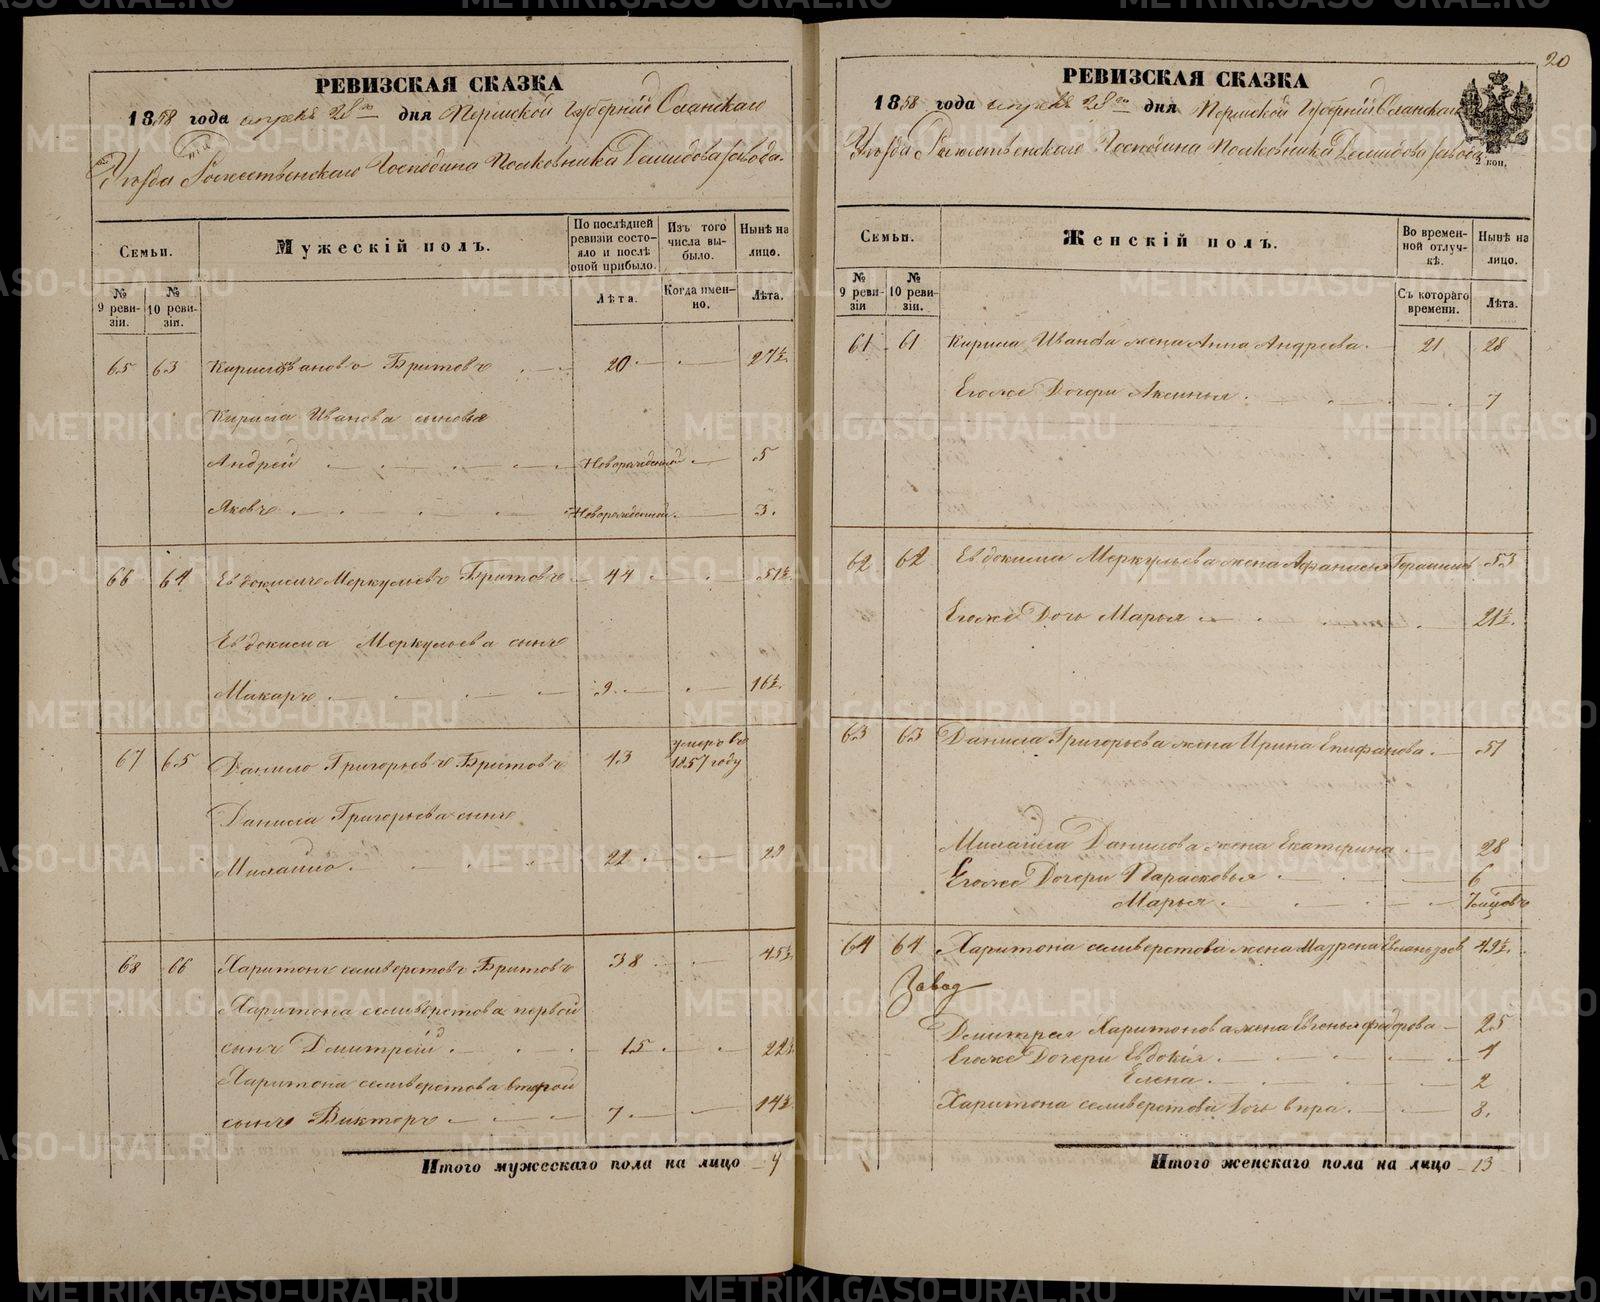 РЕВИЗСКАЯ СКАЗКА
1858 года апреля 28го дня Пермской Губернии Оханскаго
Уезда Рожественскаго Господина Полковника Демидова завода.
Семьи. Мужескій полъ. По послѣдней ревизіи состояло и послѣ оной прибыло. Изъ того числа выбыло. Нынѣ на лицо.
№ 9 ревизіи. № 10 ревизіи. Лѣта. Когда именно. Лѣта.
65 63 Кирило Ивановъ Бритовъ 20 27½
Кирила Иванова сыновья
Андрей Новорожденной 5
Яковъ Новорожденной 3.
66 64 Евдокимъ Меркульевъ Бритовъ 44 51½
Евдокима Меркульева сынъ
Макаръ 9. 16½
67 65 Данило Григорьевъ Бритовъ 43 умеръ въ 1857 году
Данила Григорьева сынъ
Михайло 22 29
68 66 Харитонъ селиверстовъ Бритовъ 38 45½
Харитона селиверстова первой
сынъ Дмитрей 15 22½
Харитона селиверстова второй
сынъ Викторъ 7. 14½
Итого мужескаго пола на лицо 9
20
РЕВИЗСКАЯ СКАЗКА
1858 года апреля 28го дня Пермской Губернии Оханскаго
Уезда Рожественскаго Господина Полковника Демидова завода
2 коп.
Семьи. Женскій полъ. Во временной отлучкѣ. Нынѣ на лицо.
№ 9 ревизіи № 10 ревизіи. Съ котораго времени. Лѣта.
61 61 Кирила Иванова жена Анна Андреева 21 28
Егоже Дочери Аксинья 7
62 62 Евдокима Меркульева жена Афанасья 53
Егоже Дочь Марья 21½
63 63 Данила Григорьева жена Ирина Епифанова 51
Михайла Данилова жена Екатерина 28
Егоже Дочери Парасковья 6
Марья
64 64 Харитона селиверстова жена Маврена 49½
Завод
Дмитрея Харитонова жена Евгенья федорова 25
Егоже Дочери Евдокія 4
Елена 2
Харитона селиверстова Дочь 8.
Итого женскаго пола на лицо 13
METRIKI.GASO-URAL.RU